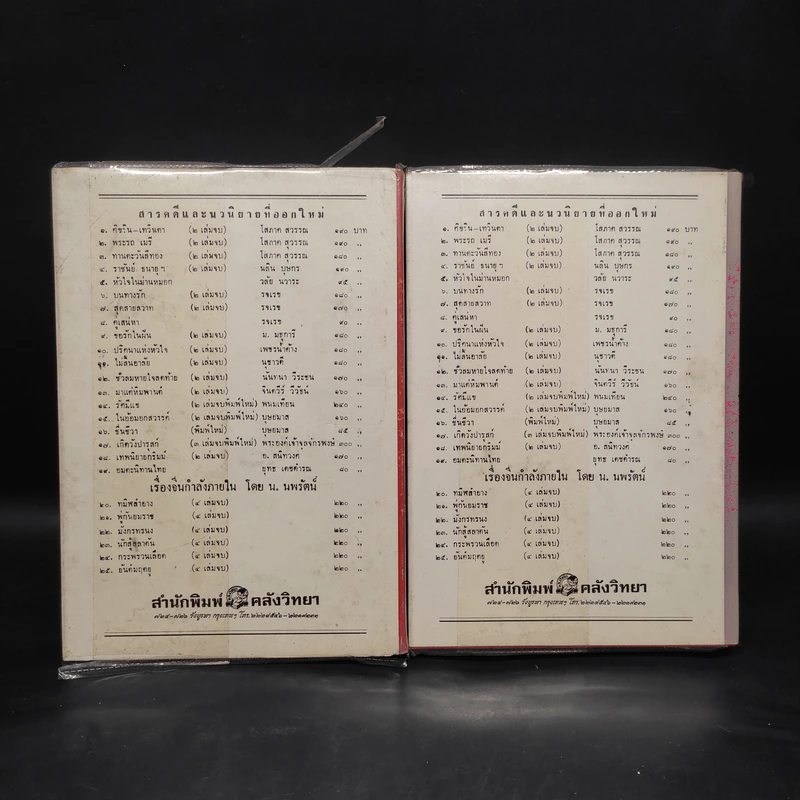 สารคดีและนวนิยายที่ออกใหม่
๑. คีชริน–เทวินตา (๒ เล่มจบ) โสภาค สุวรรณ ๑๙๐ บาท
๒. พระรถ เมรี (๒ เล่มจบ) โสภาค สุวรรณ ๑๙๐ ,,
๓. ทานตะวันสีทอง (๒ เล่มจบ) โสภาค สุวรรณ ๑๘๐ ,,
๔. ราชันย์ ธนายุ ฯ (๒ เล่มจบ) นลิน บุษกร ๑๙๐ ,,
๕. หัวใจในม่านหมอก วลัย นวาระ ๙๕ ,,
๖. บนทางรัก (๒ เล่มจบ) รจเรข ๑๘๐ ,,
๗. สุดสายสวาท (๒ เล่มจบ) รจเรข ๑๗๐ ,,
๘. คู่เสน่หา รจเรข ๙๐ ,,
๙. ขอรักในฝัน (๒ เล่มจบ) ม. มธุการี ๑๘๐ ,,
๑๐. ปริศนาแห่งหัวใจ (๒ เล่มจบ) เพชรน้ำค้าง ๑๘๐ ,,
๑๑. ไม่สิ้นอาลัย (๒ เล่มจบ) นุชาวดี ๑๘๐ ,,
๑๒. ชั่วลมหายใจสุดท้าย (๒ เล่มจบ) นันทนา วีระชน ๑๗๐ ,,
๑๓. มาแต่หิมพานต์ (๒ เล่มจบ) จินตวีร์ วิวัธน์ ๑๖๐ ,,
๑๔. รัศมีแข (๒ เล่มจบพิมพ์ใหม่) พนมเทียน ๒๔๐ ,,
๑๕. ในอ้อมอกสวรรค์ (๒ เล่มจบพิมพ์ใหม่) บุษยมาส ๑๖๐ ,,
๑๖. ชื่นชีวา (พิมพ์ใหม่) บุษยมาส ๘๕ ,,
๑๗. เกิดวังปารุสก์ (๓ เล่มจบพิมพ์ใหม่) พระองค์เจ้าจุลจักรพงษ์ ๓๐๐ ,,
๑๘. เทพนิยายกริมม์ (๒ เล่มจบ) อ. สนิทวงศ์ ๑๗๐ ,,
๑๙. อมตะนิทานไทย ยุทธ เดชคำรณ ๘๐ ,,
เรื่องจีนกำลังภายใน โดย น. นพรัตน์
๒๐. ทมิฬสำอาง (๔ เล่มจบ) ๒๒๐ ,,
๒๑. ผู้กันยมราช (๔ เล่มจบ) ๒๒๐ ,,
๒๒. มังกรทรนง (๔ เล่มจบ) ๒๒๐ ,,
๒๓. นักสู้สลาตัน (๔ เล่มจบ) ๒๒๐ ,,
๒๔. กระพรวนเลือด (๔ เล่มจบ) ๒๒๐ ,,
๒๕. ยันต์มฤตยู (๔ เล่มจบ) ๒๒๐ ,,
สำนักพิมพ์ คลังวิทยา
๗๒๔–๗๒๖ วังบูรพา กรุงเทพฯ โทร.
สารคดีและนวนิยายที่ออกใหม่
๑. คีชริน–เทวินตา (๒ เล่มจบ) โสภาค สุวรรณ ๑๙๐ บาท
๒. พระรถ เมรี (๒ เล่มจบ) โสภาค สุวรรณ ๑๙๐ ,,
๓. ทานตะวันสีทอง (๒ เล่มจบ) โสภาค สุวรรณ ๑๘๐ ,,
๔. ราชันย์ ธนายุ ฯ (๒ เล่มจบ) นลิน บุษกร ๑๙๐ ,,
๕. หัวใจในม่านหมอก วลัย นวาระ ๙๕ ,,
๖. บนทางรัก (๒ เล่มจบ) รจเรข ๑๘๐ ,,
๗. สุดสายสวาท (๒ เล่มจบ) รจเรข ๑๗๐ ,,
๘. คู่เสน่หา รจเรข ๙๐ ,,
๙. ขอรักในฝัน (๒ เล่มจบ) ม. มธุการี ๑๘๐ ,,
๑๐. ปริศนาแห่งหัวใจ (๒ เล่มจบ) เพชรน้ำค้าง ๑๘๐ ,,
๑๑. ไม่สิ้นอาลัย (๒ เล่มจบ) นุชาวดี ๑๘๐ ,,
๑๒. ชั่วลมหายใจสุดท้าย (๒ เล่มจบ) นันทนา วีระชน ๑๗๐ ,,
๑๓. มาแต่หิมพานต์ (๒ เล่มจบ) จินตวีร์ วิวัธน์ ๑๖๐ ,,
๑๔. รัศมีแข (๒ เล่มจบพิมพ์ใหม่) พนมเทียน ๒๔๐ ,,
๑๕. ในอ้อมอกสวรรค์ (๒ เล่มจบพิมพ์ใหม่) บุษยมาส ๑๖๐ ,,
๑๖. ชื่นชีวา (พิมพ์ใหม่) บุษยมาส ๘๕ ,,
๑๗. เกิดวังปารุสก์ (๓ เล่มจบพิมพ์ใหม่) พระองค์เจ้าจุลจักรพงษ์ ๓๐๐ ,,
๑๘. เทพนิยายกริมม์ (๒ เล่มจบ) อ. สนิทวงศ์ ๑๗๐ ,,
๑๙. อมตะนิทานไทย ยุทธ เดชคำรณ ๘๐ ,,
เรื่องจีนกำลังภายใน โดย น. นพรัตน์
๒๐. ทมิฬสำอาง (๔ เล่มจบ) ๒๒๐ ,,
๒๑. ผู้กันยมราช (๔ เล่มจบ) ๒๒๐ ,,
๒๒. มังกรทรนง (๔ เล่มจบ) ๒๒๐ ,,
๒๓. นักสู้สลาตัน (๔ เล่มจบ) ๒๒๐ ,,
๒๔. กระพรวนเลือด (๔ เล่มจบ) ๒๒๐ ,,
๒๕. ยันต์มฤตยู (๔ เล่มจบ) ๒๒๐ ,,
สำนักพิมพ์ คลังวิทยา
๗๒๔–๗๒๖ วังบูรพา กรุงเทพฯ โทร.